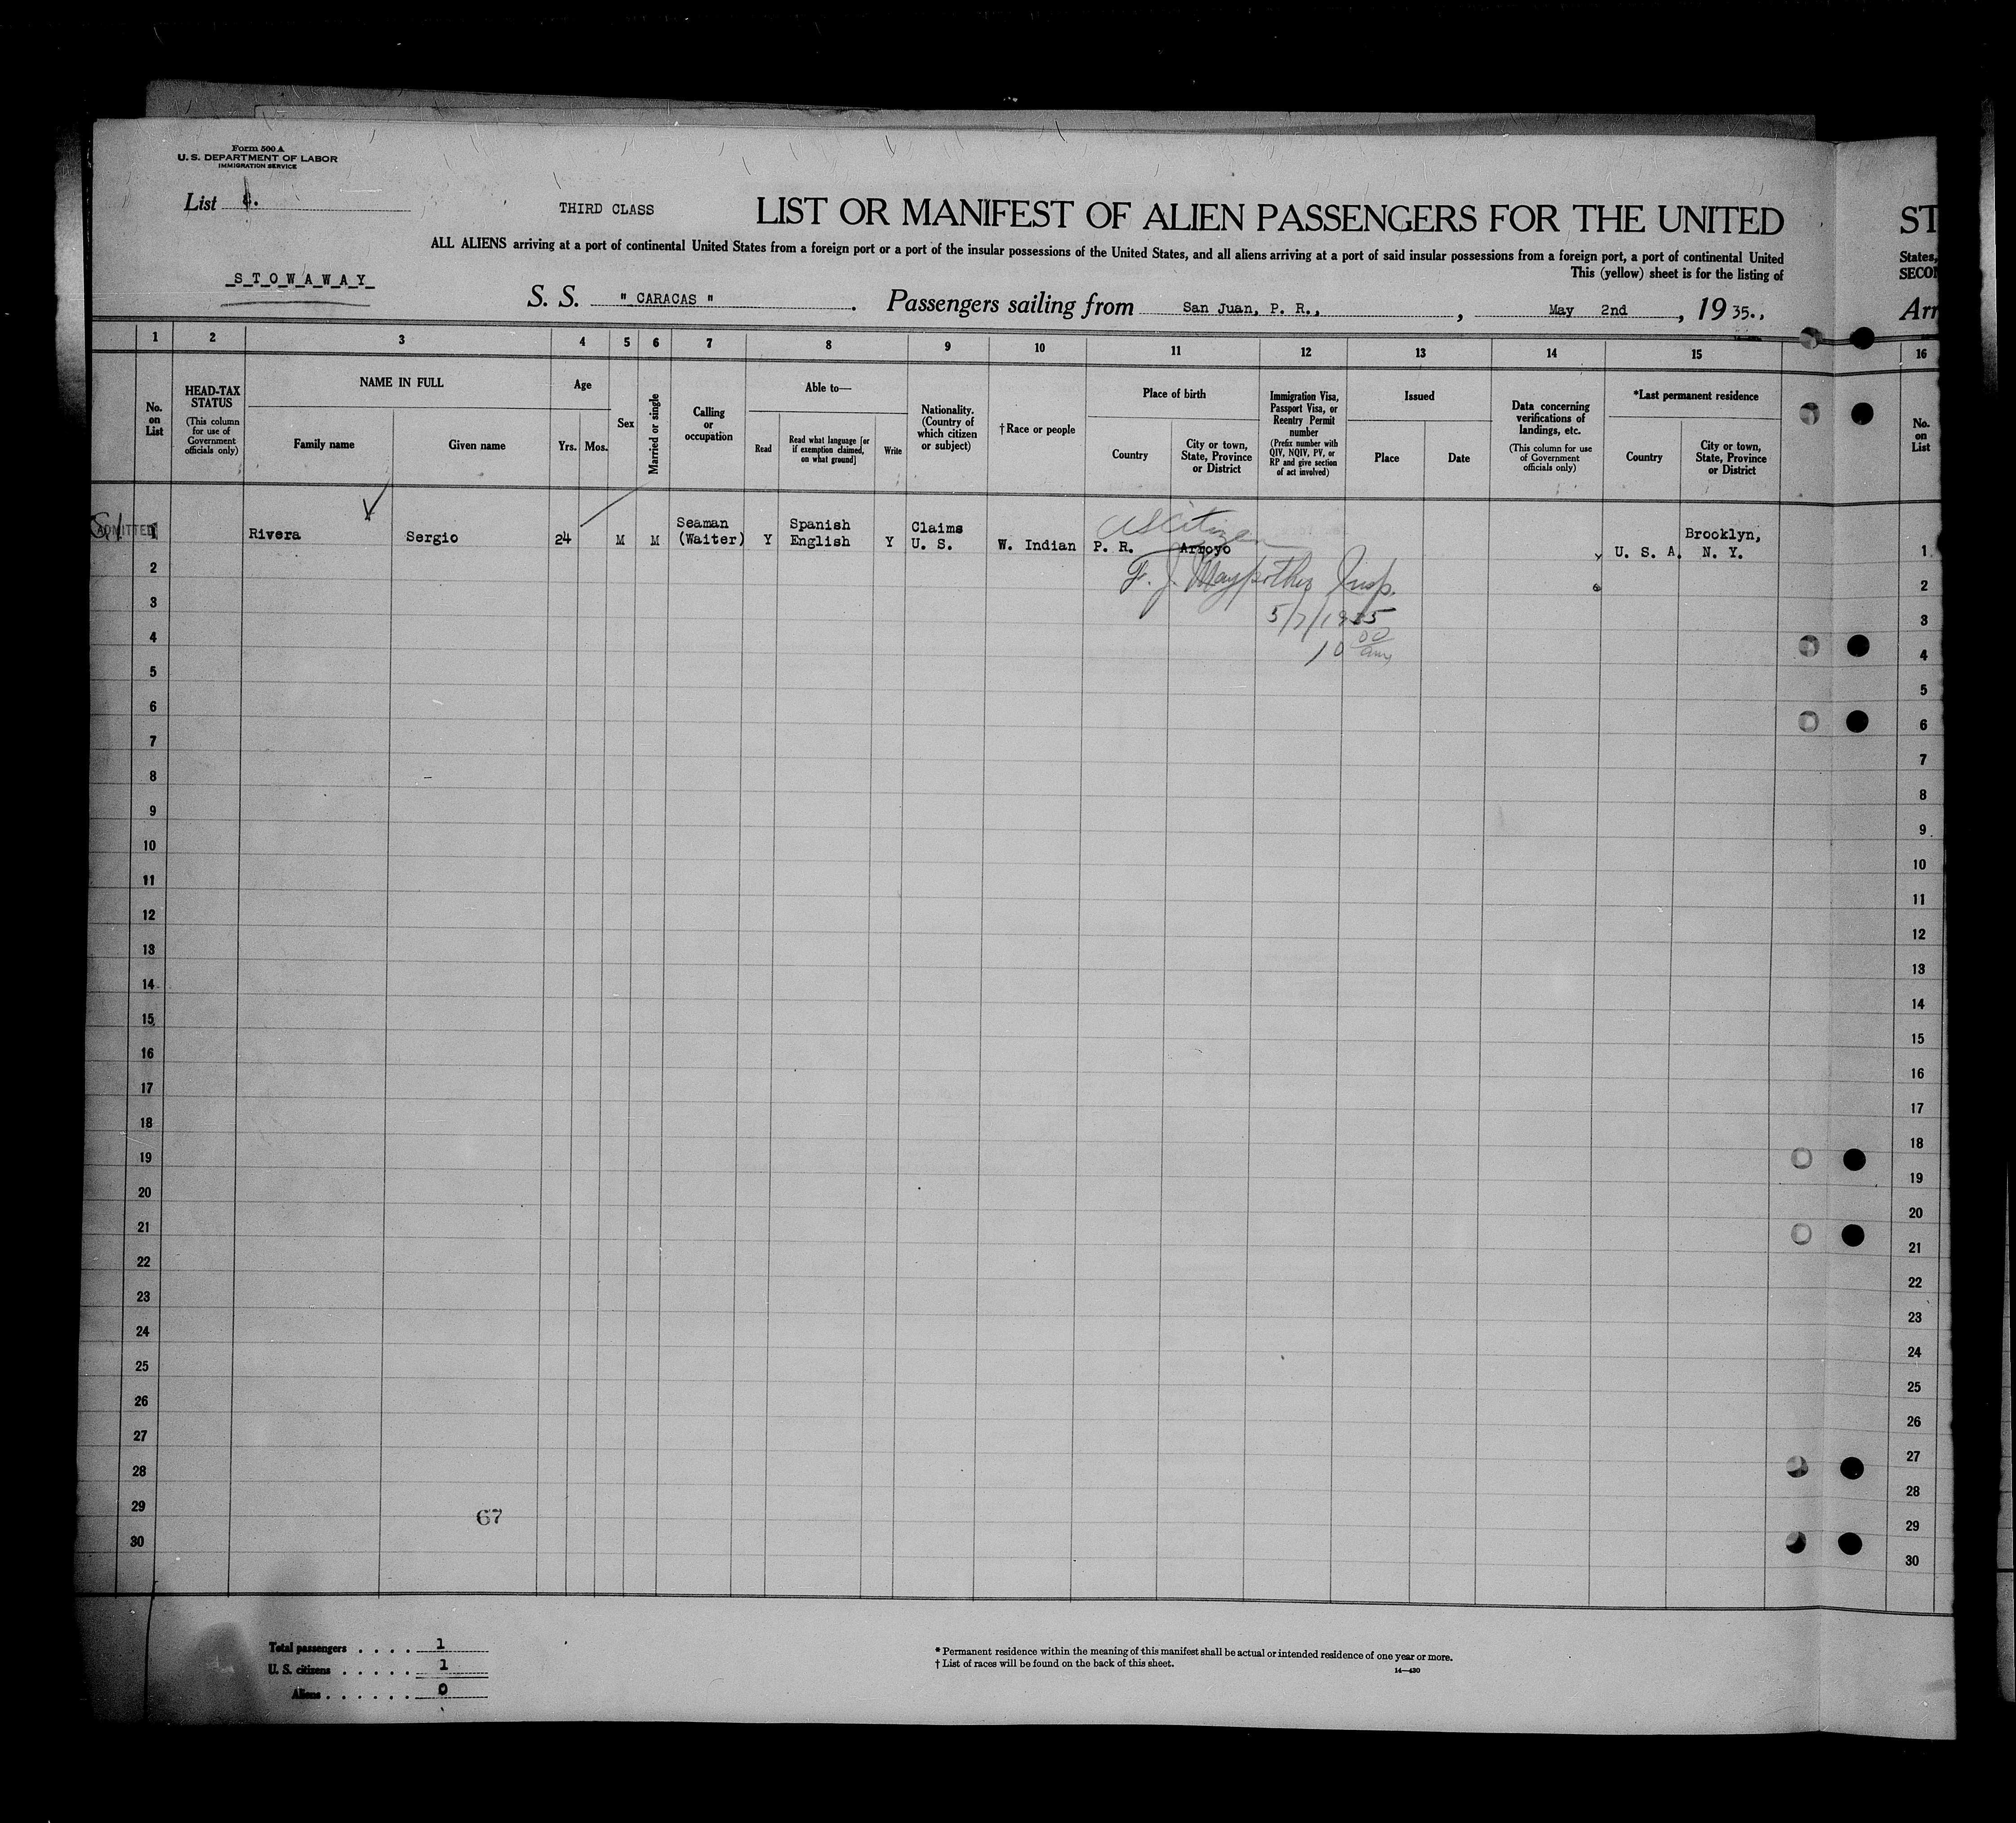 Form 500 A
U. S. DEPARTMENT OF LABOR
IMMIGRATION SERVICE
List
THIRD CLASS
LIST OR MANIFEST OF ALIEN PASSENGERS FOR THE UNITED
ST
ALL ALIENS arriving at a port of continental United States from a foreign port or a port of the insular possessions of the United States, and all aliens arriving at a port of said insular possessions from a foreign port, a port of continental United
States,
This (yellow) sheet is for the listing of
SECON
S_T_O_W_A_W_A_Y_
S. S. " CARACAS " . Passengers sailing from San Juan, P. R., , May 2nd , 1935.,
Arr
1 2 3 4 5 6 7 8 9 10 11 12 13 14 15 16
No. on List
HEAD-TAX STATUS
(This column for use of Government officials only)
NAME IN FULL
Family name
Given name
Age
Yrs. Mos.
Sex
Married or single
Calling or occupation
Able to—
Read
Read what language [or if exemption claimed, on what ground]
Write
Nationality. (Country of which citizen or subject)
†Race or people
Place of birth
Country
City or town, State, Province or District
Immigration Visa, Passport Visa, or Reentry Permit number
(Prefix number with QIV, NQIV, PV, or RP and give section of act involved)
Issued
Place
Date
Data concerning verifications of landings, etc.
(This column for use of Government officials only)
*Last permanent residence
Country
City or town, State, Province or District
No. on List
US Citizen
ADMITTED 1 Rivera Sergio 24 M M Seaman (Waiter) Y Spanish English Y Claims U. S. W. Indian P. R. Arroyo U. S. A. Brooklyn, N. Y. 1
2 F. J. Insp. 2
3 5/7/1935 3
4 10 00 am 4
5 5
6 6
7 7
8 8
9 9
10 10
11 11
12 12
13 13
14 14
15 15
16 16
17 17
18 18
19 19
20 20
21 21
22 22
23 23
24 24
25 25
26 26
27 27
28 28
29 67 29
30 30
Total passengers . . . . 1
U. S. citizens . . . . . 1
Aliens . . . . . . 0
* Permanent residence within the meaning of this manifest shall be actual or intended residence of one year or more.
† List of races will be found on the back of this sheet.
14—430